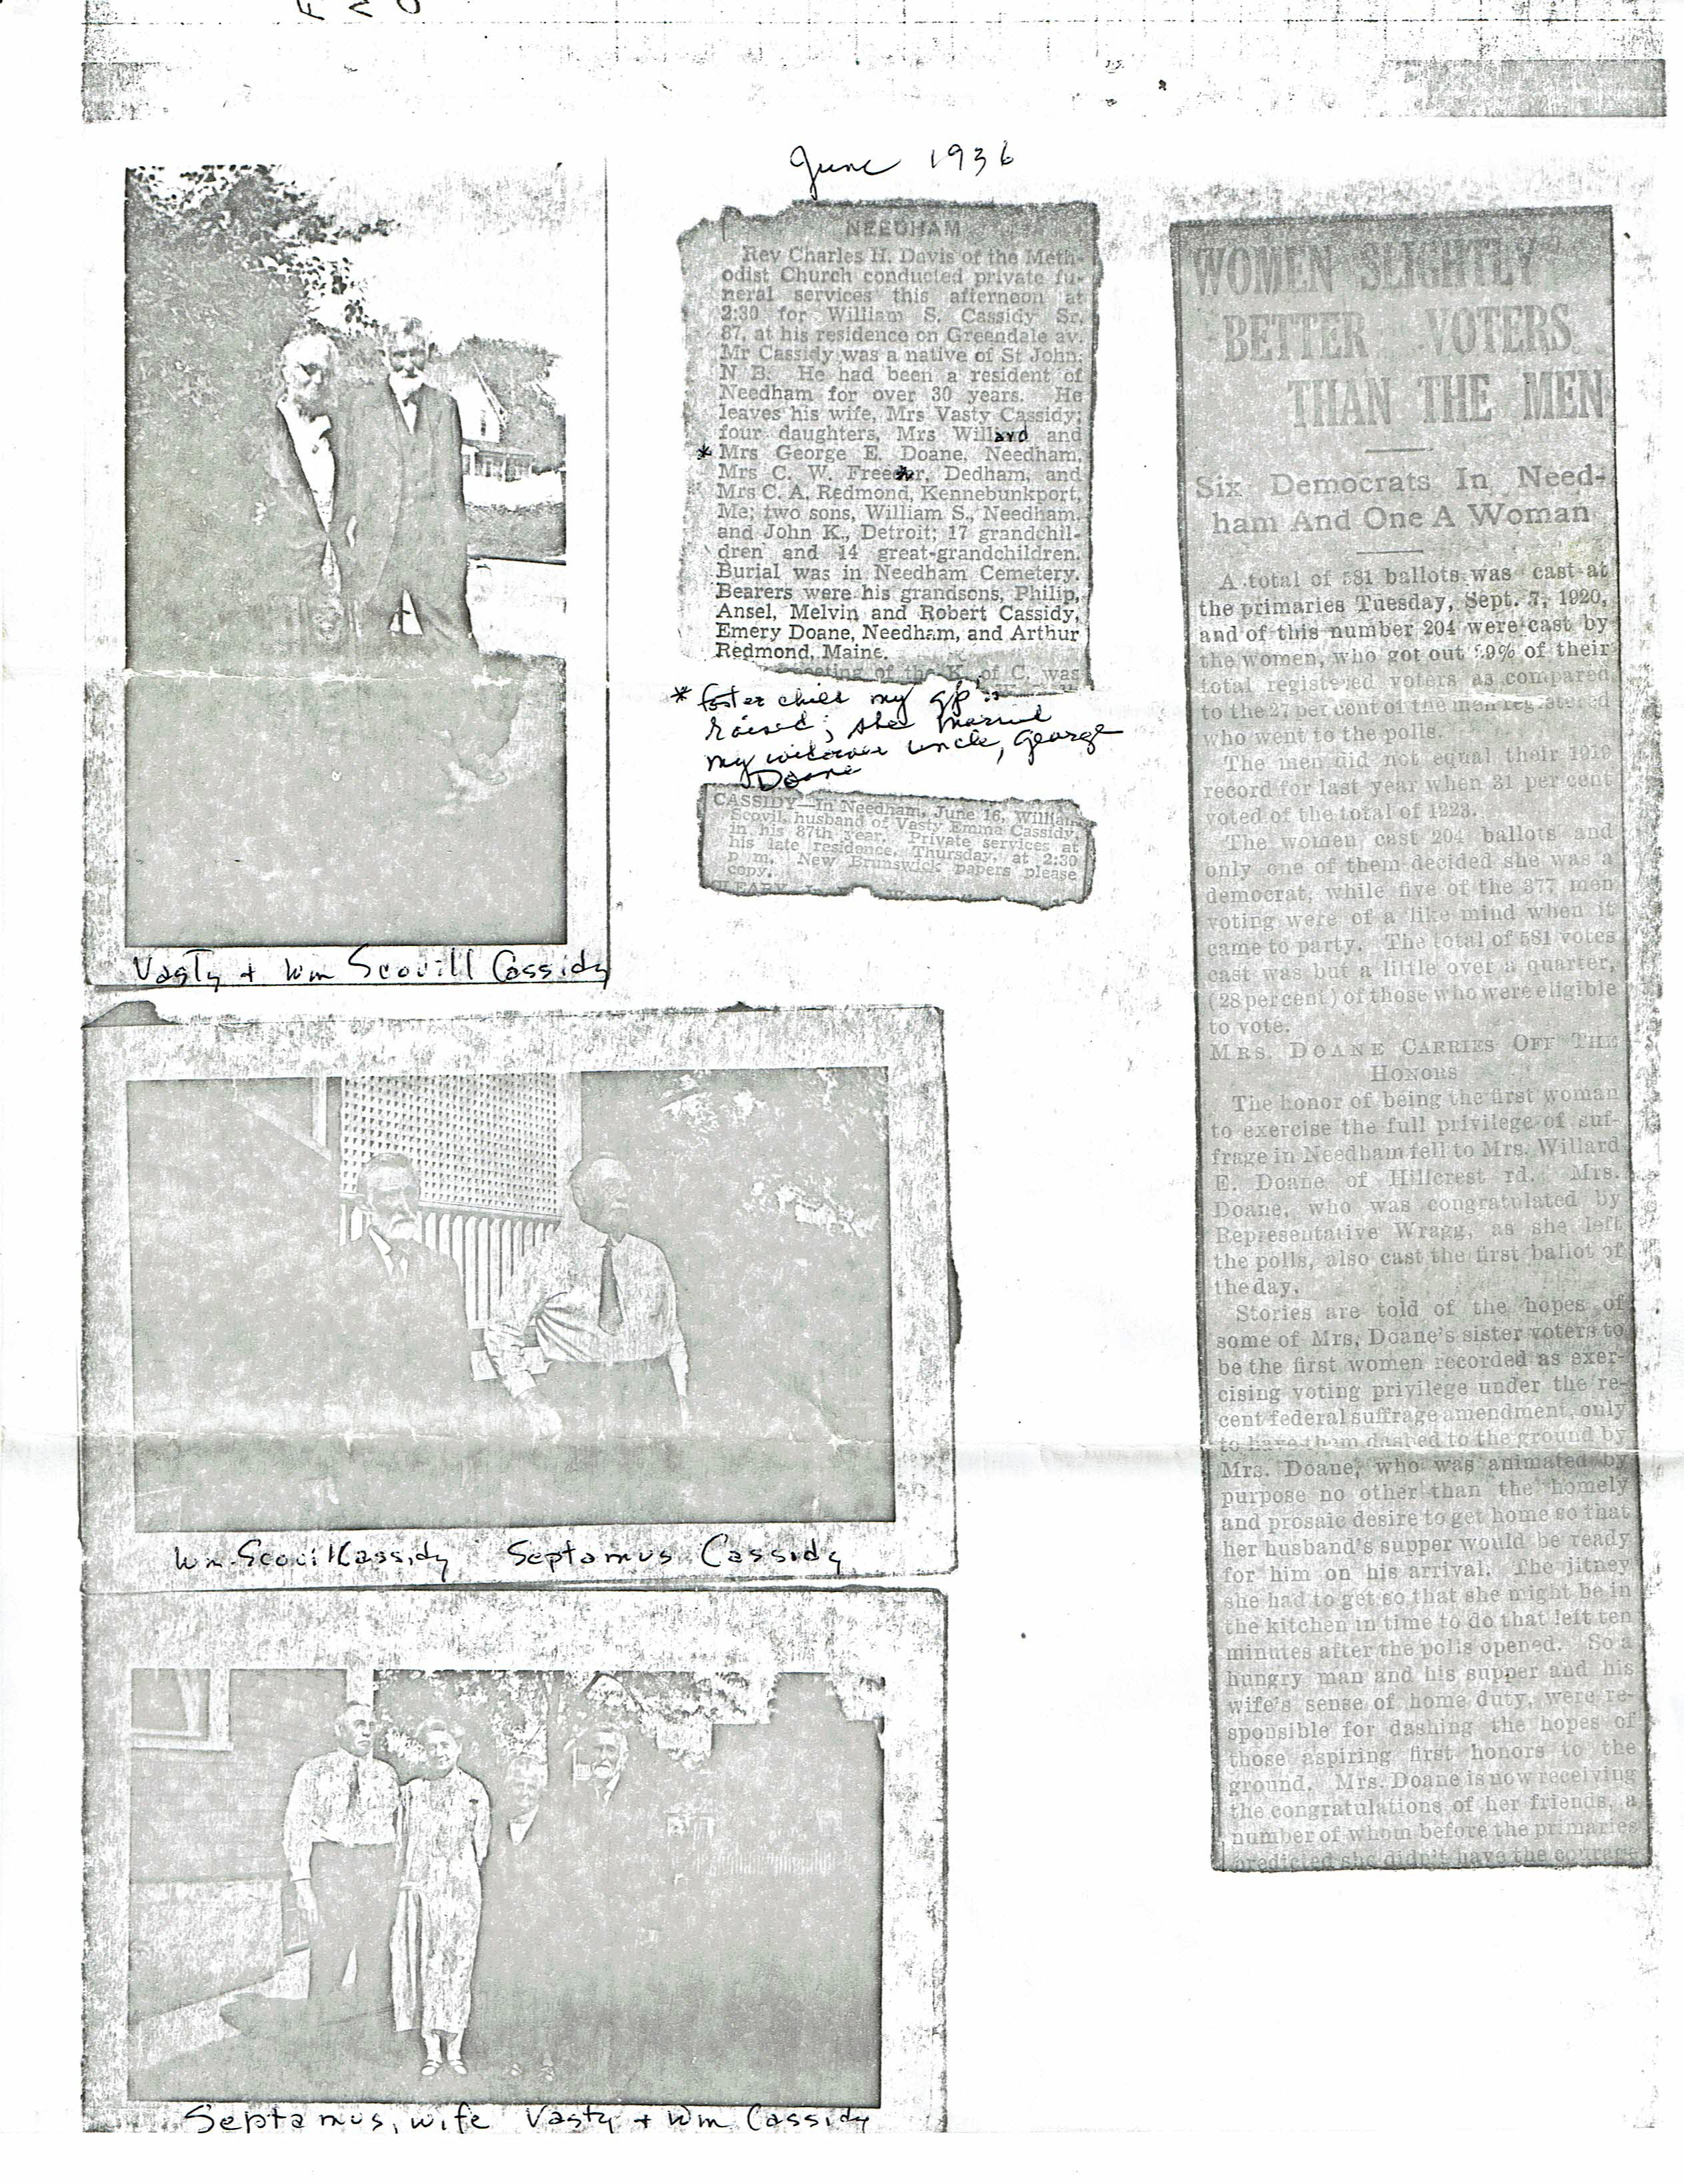 June 1936
NEEDHAM
Rev Charles H. Davis of the Meth-
odist Church conducted private fu-
neral services this afternoon at
2:30 for William S. Cassidy Sr,
87, at his residence on Greendale av.
Mr Cassidy was a native of St John,
N B. He had been a resident of
Needham for over 30 years. He
leaves his wife, Mrs Vasty Cassidy;
four daughters, Mrs Willard and
* Mrs George E. Doane, Needham,
Mrs C. W. Freeer, Dedham, and
Mrs C. A. Redmond, Kennebunkport,
Me; two sons, William S., Needham,
and John K., Detroit; 17 grandchil-
dren and 14 great-grandchildren.
Burial was in Needham Cemetery.
Bearers were his grandsons, Philip,
Ansel, Melvin and Robert Cassidy,
Emery Doane, Needham, and Arthur
Redmond, Maine.
meeting of the K. of C. was
* foster child my gp
raised; she married
my widower uncle, George
Doane
CASSIDY—In Needham, June 16, William
Scovil, husband of Vasty Emma Cassidy,
in his 87th year. Private services at
his late residence, Thursday, at 2:30
p m. New Brunswick papers please
copy.
Vasty + Wm Scovill Cassidy
Wm. Scovill Cassidy Septamus Cassidy
Septamus, wife Vasty + Wm Cassidy
WOMEN SLIGHTLY
BETTER VOTERS
THAN THE MEN
Six Democrats In Need-
ham And One A Woman
A total of 581 ballots was cast at
the primaries Tuesday, Sept. 7, 1920,
and of this number 204 were cast by
the women, who got out of their
total registered voters as compared
to the 27 per cent of the men registered
who went to the polls.
The men did not equal their 1919
record for last year when 31 per cent
voted of the total of 1223.
The women cast 204 ballots and
only one of them decided she was a
democrat, while five of the 377 men
voting were of a like mind when it
came to party. The total of 581 votes
cast was but a little over a quarter,
(28 per cent) of those who were eligible
to vote.
MRS. DOANE CARRIES OFF THE
HONORS
The honor of being the first woman
to exercise the full privilege of suf-
frage in Needham fell to Mrs. Willard
E. Doane of Hillcrest rd. Mrs.
Doane, who was congratulated by
Representative Wragg, as she left
the polls, also cast the first ballot of
the day.
Stories are told of the hopes of
some of Mrs. Doane's sister voters to
be the first women recorded as exer-
cising voting privilege under the re-
cent federal suffrage amendment, only
to have them dashed to the ground by
Mrs. Doane, who was animated by
purpose no other than the homely
and prosaic desire to get home so that
her husband's supper would be ready
for him on his arrival. The jitney
she had to get so that she might be in
the kitchen in time to do that left ten
minutes after the polls opened. So a
hungry man and his supper and his
wife's sense of home duty, were re-
sponsible for dashing the hopes of
those aspiring first honors to the
ground. Mrs. Doane is now receiving
the congratulations of her friends, a
number of whom before the primaries
predicted she didn't have the courage